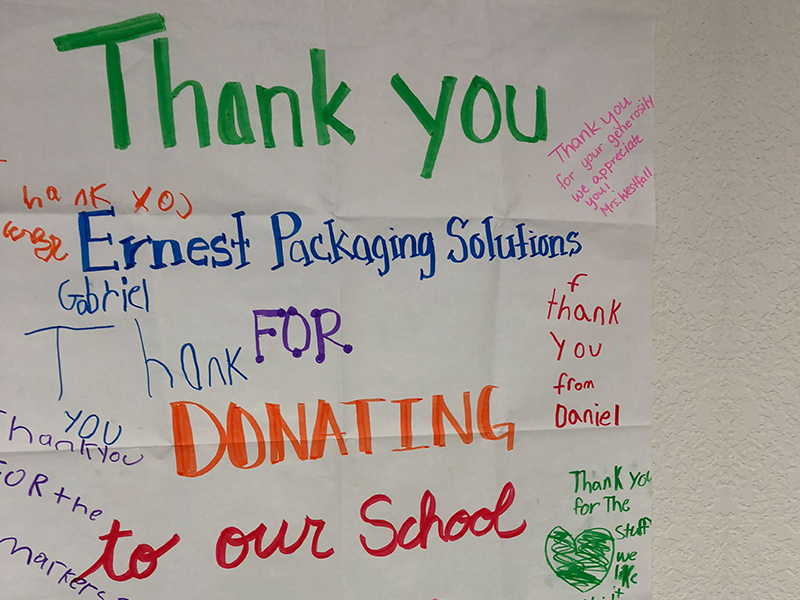 Thank you
Thank you
for your generosity
we appreciate
you!
Mrs. Westfall
hank you
Ernest Packaging Solutions
Gabriel
Thank
YOU
FOR
f
thank
you
from
Daniel
DONATING
Thankyou
FOR the
markers
to our School
Thank you
for The
Stuff
we
like
it